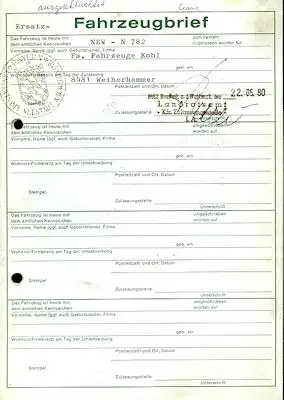 ausgeschlachtet
Ersatz- Fahrzeugbrief
Das Fahrzeug ist heute mit dem amtlichen Kennzeichen NEW - N 782 zum Verkehr zugelassen worden für:
Vorname, Name (ggf. auch Geburtsname), Firma
Fa. Fahrzeuge Kohl
geb. am
Wohnort/Firmensitz am Tag der Zulassung
8481 Weiherhammer
Postleitzahl und Ort, Datum
22. 05. 80
Landratsamt
Zulassungsstelle
- Kfz.Zulassungsstelle -
I. A.
Das Fahrzeug ist heute mit dem amtlichen Kennzeichen umgeschrieben worden auf:
Vorname, Name (ggf. auch Geburtsname), Firma
geb. am
Wohnort/Firmensitz am Tag der Umschreibung
Postleitzahl und Ort, Datum
Stempel
Zulassungsstelle
Unterschrift
Das Fahrzeug ist heute mit dem amtlichen Kennzeichen umgeschrieben worden auf:
Vorname, Name (ggf. auch Geburtsname), Firma
geb. am
Wohnort/Firmensitz am Tag der Umschreibung
Postleitzahl und Ort, Datum
Stempel
Zulassungsstelle
Unterschrift
Das Fahrzeug ist heute mit dem amtlichen Kennzeichen umgeschrieben worden auf:
Vorname, Name (ggf. auch Geburtsname), Firma
geb. am
Wohnort/Firmensitz am Tag der Umschreibung
Postleitzahl und Ort, Datum
Stempel
Zulassungsstelle
Unterschrift